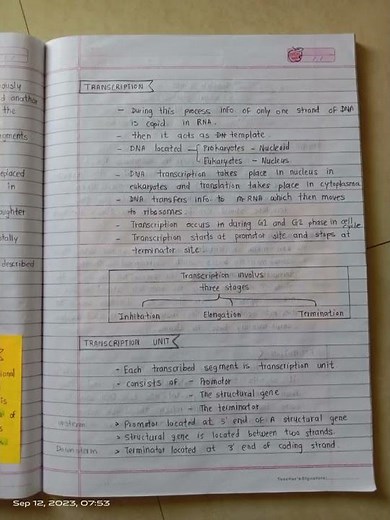 TRANSCRIPTION
- During this process info of only one strand of DNA
is copid in RNA.
- then it acts as template.
- DNA located - Prokaryotes - Nucleoid
Eukaryotes - Nucleus.
- DNA transcription takes place in nucleus in
eukaryotes and translation takes place in cytoplasm
- DNA transfers info to mRNA which then moves
to ribosomes.
- Transcription occurs in during G1 and G2 phase in cell cycle
- Transcription starts at promotor site and stops at
terminator site
Transcription involvs
three stages
Inhitation Elongation Termination
TRANSCRIPTION UNIT
- Each transcribed segment is transcription unit
- consists of - Promotor
- The structural gene
- The terminator
> Promotor located at 5' end of A structural gene
> Structural gene is located between two strands.
> Terminator located at 3' end of coding strand.
Teacher's Signature
the
in
described
of
Sep 12, 2023, 07:53